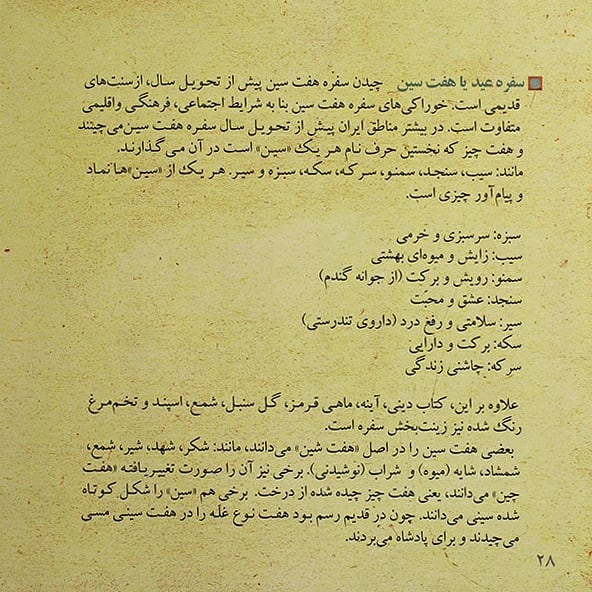 سفره عید یا هفت سین چیدن سفره هفت سین پیش از تحویل سال، از سنت‌های
قدیمی است. خوراکی‌های سفره هفت سین بنا به شرایط اجتماعی، فرهنگی و اقلیمی
متفاوت است. در بیشتر مناطق ایران پیش از تحویل سال سفره هفت سین می‌چینند
و هفت چیز که نخستین حرف نام هر یک «سین» است در آن می‌گذارند.
مانند: سیب، سنجد، سمنو، سرکه، سکه، سبزه و سیر. هر یک از «سین»ها نماد
و پیام‌آور چیزی است.
سبزه: سرسبزی و خرمی
سیب: زایش و میوه‌ای بهشتی
سمنو: رویش و برکت (از جوانه گندم)
سنجد: عشق و محبّت
سیر: سلامتی و رفع درد (داروی تندرستی)
سکه: برکت و دارایی
سرکه: چاشنی زندگی
علاوه بر این، کتاب دینی، آینه، ماهی قرمز، گل سنبل، شمع، اسپند و تخم‌مرغ
رنگ شده نیز زینت‌بخش سفره است.
بعضی هفت سین را در اصل «هفت شین» می‌دانند، مانند: شکر، شهد، شیر، شمع،
شمشاد، شایه (میوه) و شراب (نوشیدنی). برخی نیز آن را صورت تغییریافته «هفت
چین» می‌دانند، یعنی هفت چیز چیده شده از درخت. برخی هم «سین» را شکل کوتاه
شده سینی می‌دانند. چون در قدیم رسم بود هفت نوع غلّه را در هفت سینی مسی
می‌چیدند و برای پادشاه می‌بردند.
۲۸